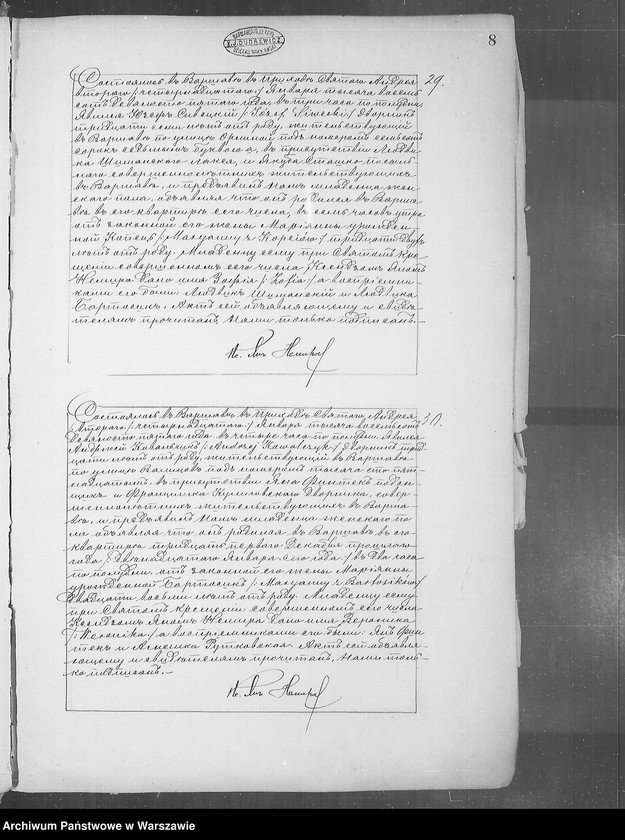 8
29.
Состоялось въ Варшавѣ въ приходѣ Святаго Андрея
второго /: четырнадцатого :/ Января тысяча восемь
сотъ девяносто пятого года, въ три часа по полудни.
Явился Юзефъ Сивецкій /: Józef Siwecki :/ дворникъ
тридцати лѣтъ отъ роду, жительствующій
въ Варшавѣ по улицѣ Орлиной подъ номеромъ семьсотъ
сорокъ седьмымъ буквою въ присутствіи Людви-
ка Шиманского лакея, и Якуба Сташко
совершеннолѣтнихъ жительствующихъ
въ Варшавѣ, и предъявилъ намъ младенца жен-
ского пола, объявляя что онъ родился въ Варша-
вѣ въ его квартирѣ сего числа, въ семь часовъ утра
отъ законной его жены Маріанны урожден-
ной /: Maryanny z :/ тридцати двухъ
лѣтъ отъ роду. Младенцу сему при Святомъ Кре-
щеніи совершенномъ сего числа Ксендзомъ Яномъ
Немира дано имя Зофія /: Zofia :/ а воспріемни-
ками его были: Людвикъ Шиманскій и Людвика
Бартосикъ. Актъ сей объявляющему и свидѣ-
телямъ прочитанъ, Нами только подписанъ.—
Кс. Янъ Немира
30.
Состоялось въ Варшавѣ въ приходѣ Святаго Андрея
второго /: четырнадцатого :/ Января тысяча восемьсотъ
девяносто пятого года въ четыре часа по полудни. Явился
Андржей Кавальчикъ /: Andrzej Kawalczyk :/ дворникъ трид-
цати лѣтъ отъ роду, жительствующій въ Варшавѣ
по улицѣ Валицовъ подъ номеромъ тысяча сто пят-
надцатымъ, въ присутствіи Яна Финтекъ поден-
щика и Францишка Куликовского дворника, совер-
шеннолѣтнихъ жительствующихъ въ Варша-
вѣ, и предъявилъ намъ младенца женского по-
ла объявляя что онъ родился въ Варшавѣ въ его
квартирѣ тридцать перваго Декабря прошлого
года /: двѣнадцатого Января сего года :/ въ два часа
по полудни. отъ законной его жены Маріанны
урожденной Бартосикъ /: Maryanny z Bartosików :/
двадцати восьми лѣтъ отъ роду. Младенцу сему
при Святомъ крещеніи совершенномъ сего числа
Ксендзомъ Яномъ Немира дано имя Вероника
/: Weronika :/ а воспріемниками его были: Янъ Фин-
текъ и Агнешка Рутковская. Актъ сей объявля-
ющему и свидѣтелямъ прочитанъ, Нами толь-
ко подписанъ.—
Кс. Янъ Немира
Archiwum Państwowe w Warszawie